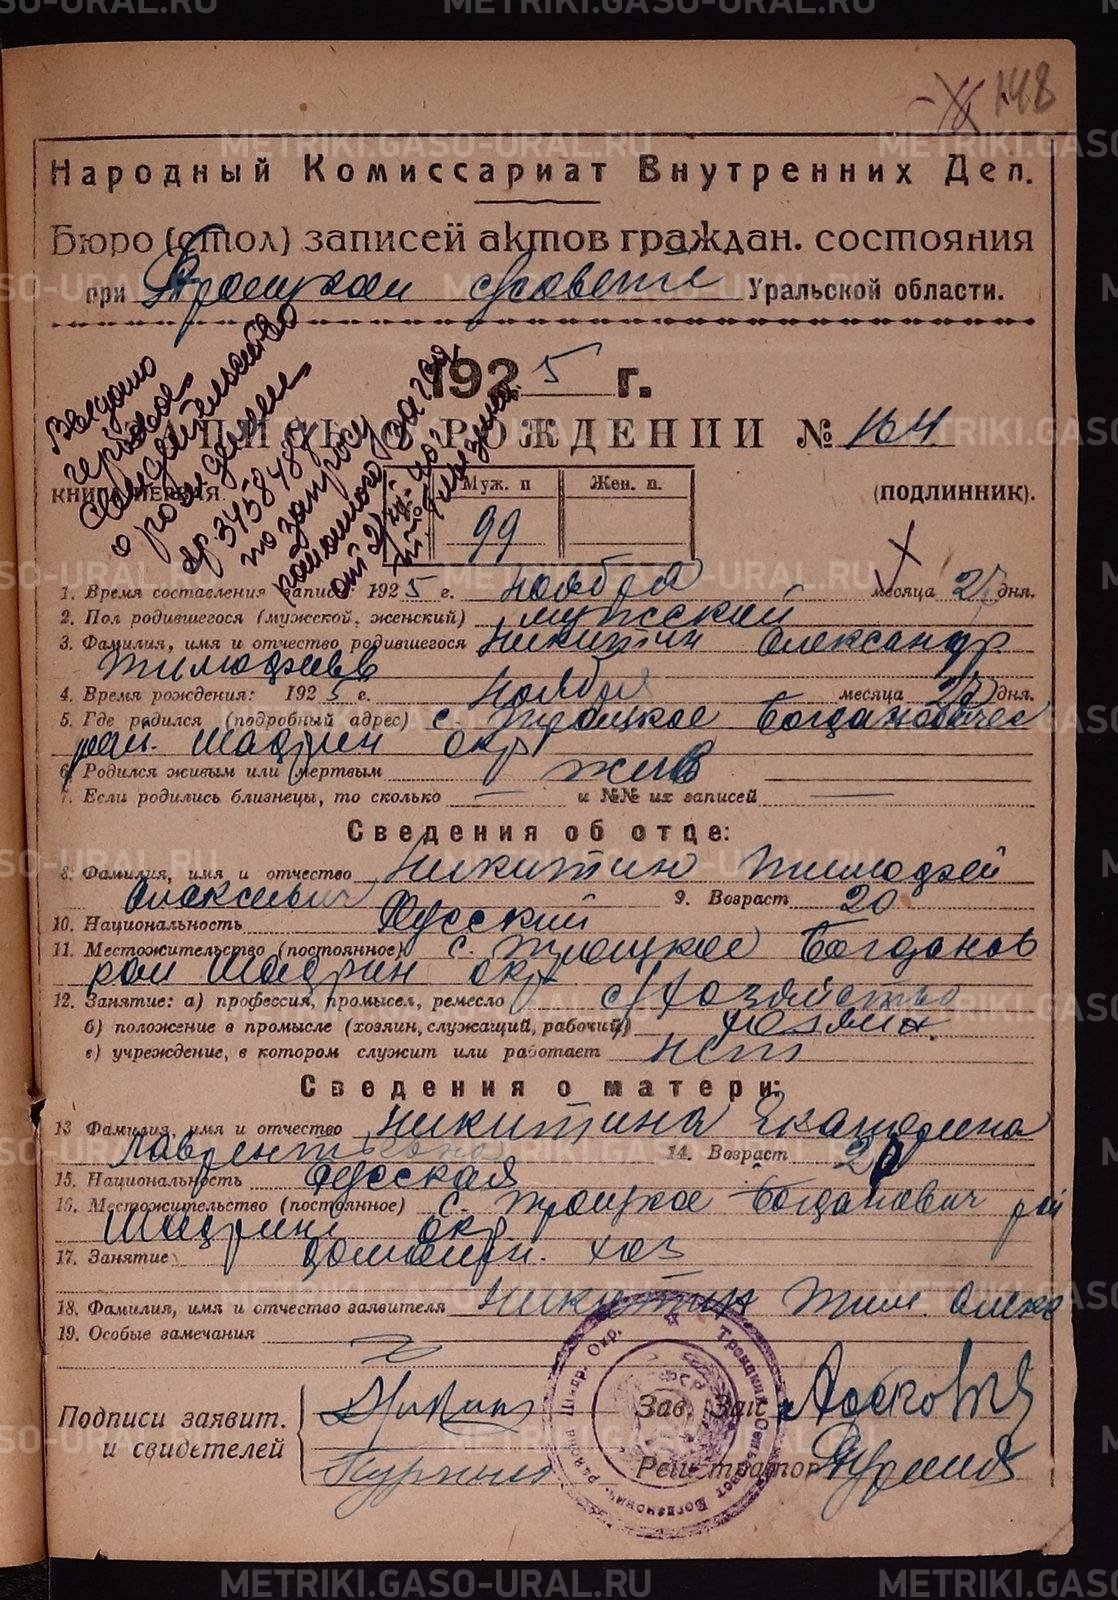 148
Народный Комиссариат Внутренних Дел.
Бюро (стол) записей актов граждан. состояния
при Троицком с/совете Уральской области.
1925 г.
ЗАПИСЬ О РОЖДЕНИИ № 164
Выдано
гербовое
свидетельство
о рождении
по запросу
районного загса
КНИГА ПЕРВАЯ.
(ПОДЛИННИК).
Муж. п Жен. п.
99
1. Время составления записи: 1925 г. ноября месяца 27 дня.
2. Пол родившегося (мужской, женский) мужский
3. Фамилия, имя и отчество родившегося Никитин Александр
Тимофеев
4. Время рождения: 1925 г. ноября месяца дня.
5. Где родился (подробный адрес) с. Троицкое Богдановичес
рай. Шадрин окр
6. Родился живым или мертвым жив
7. Если родились близнецы, то сколько — и №№ их записей —
Сведения об отце:
8. Фамилия, имя и отчество Никитин Тимофей
Алексеевич 9. Возраст 20
10. Национальность Русский
11. Местожительство (постоянное) с. Троицкое Богданов
рай Шадрин окр
12. Занятие: а) профессия, промысел, ремесло с/хозяйство
б) положение в промысле (хозяин, служащий, рабочий) хозяин
в) учреждение, в котором служит или работает нет
Сведения о матери:
13 Фамилия, имя и отчество Никитина Екатерина
Лаврентьевна 14. Возраст 20
15. Национальность Русская
16. Местожительство (постоянное) с. Троицкое Богданович рай
Шадрин окр
17. Занятие домашн. хоз
18. Фамилия, имя и отчество заявителя Никитин Тим. Алекс
19. Особые замечания
Подписи заявит.
и свидетелей
Зав. Загс
Регистратор
METRIKI.GASO-URAL.RU